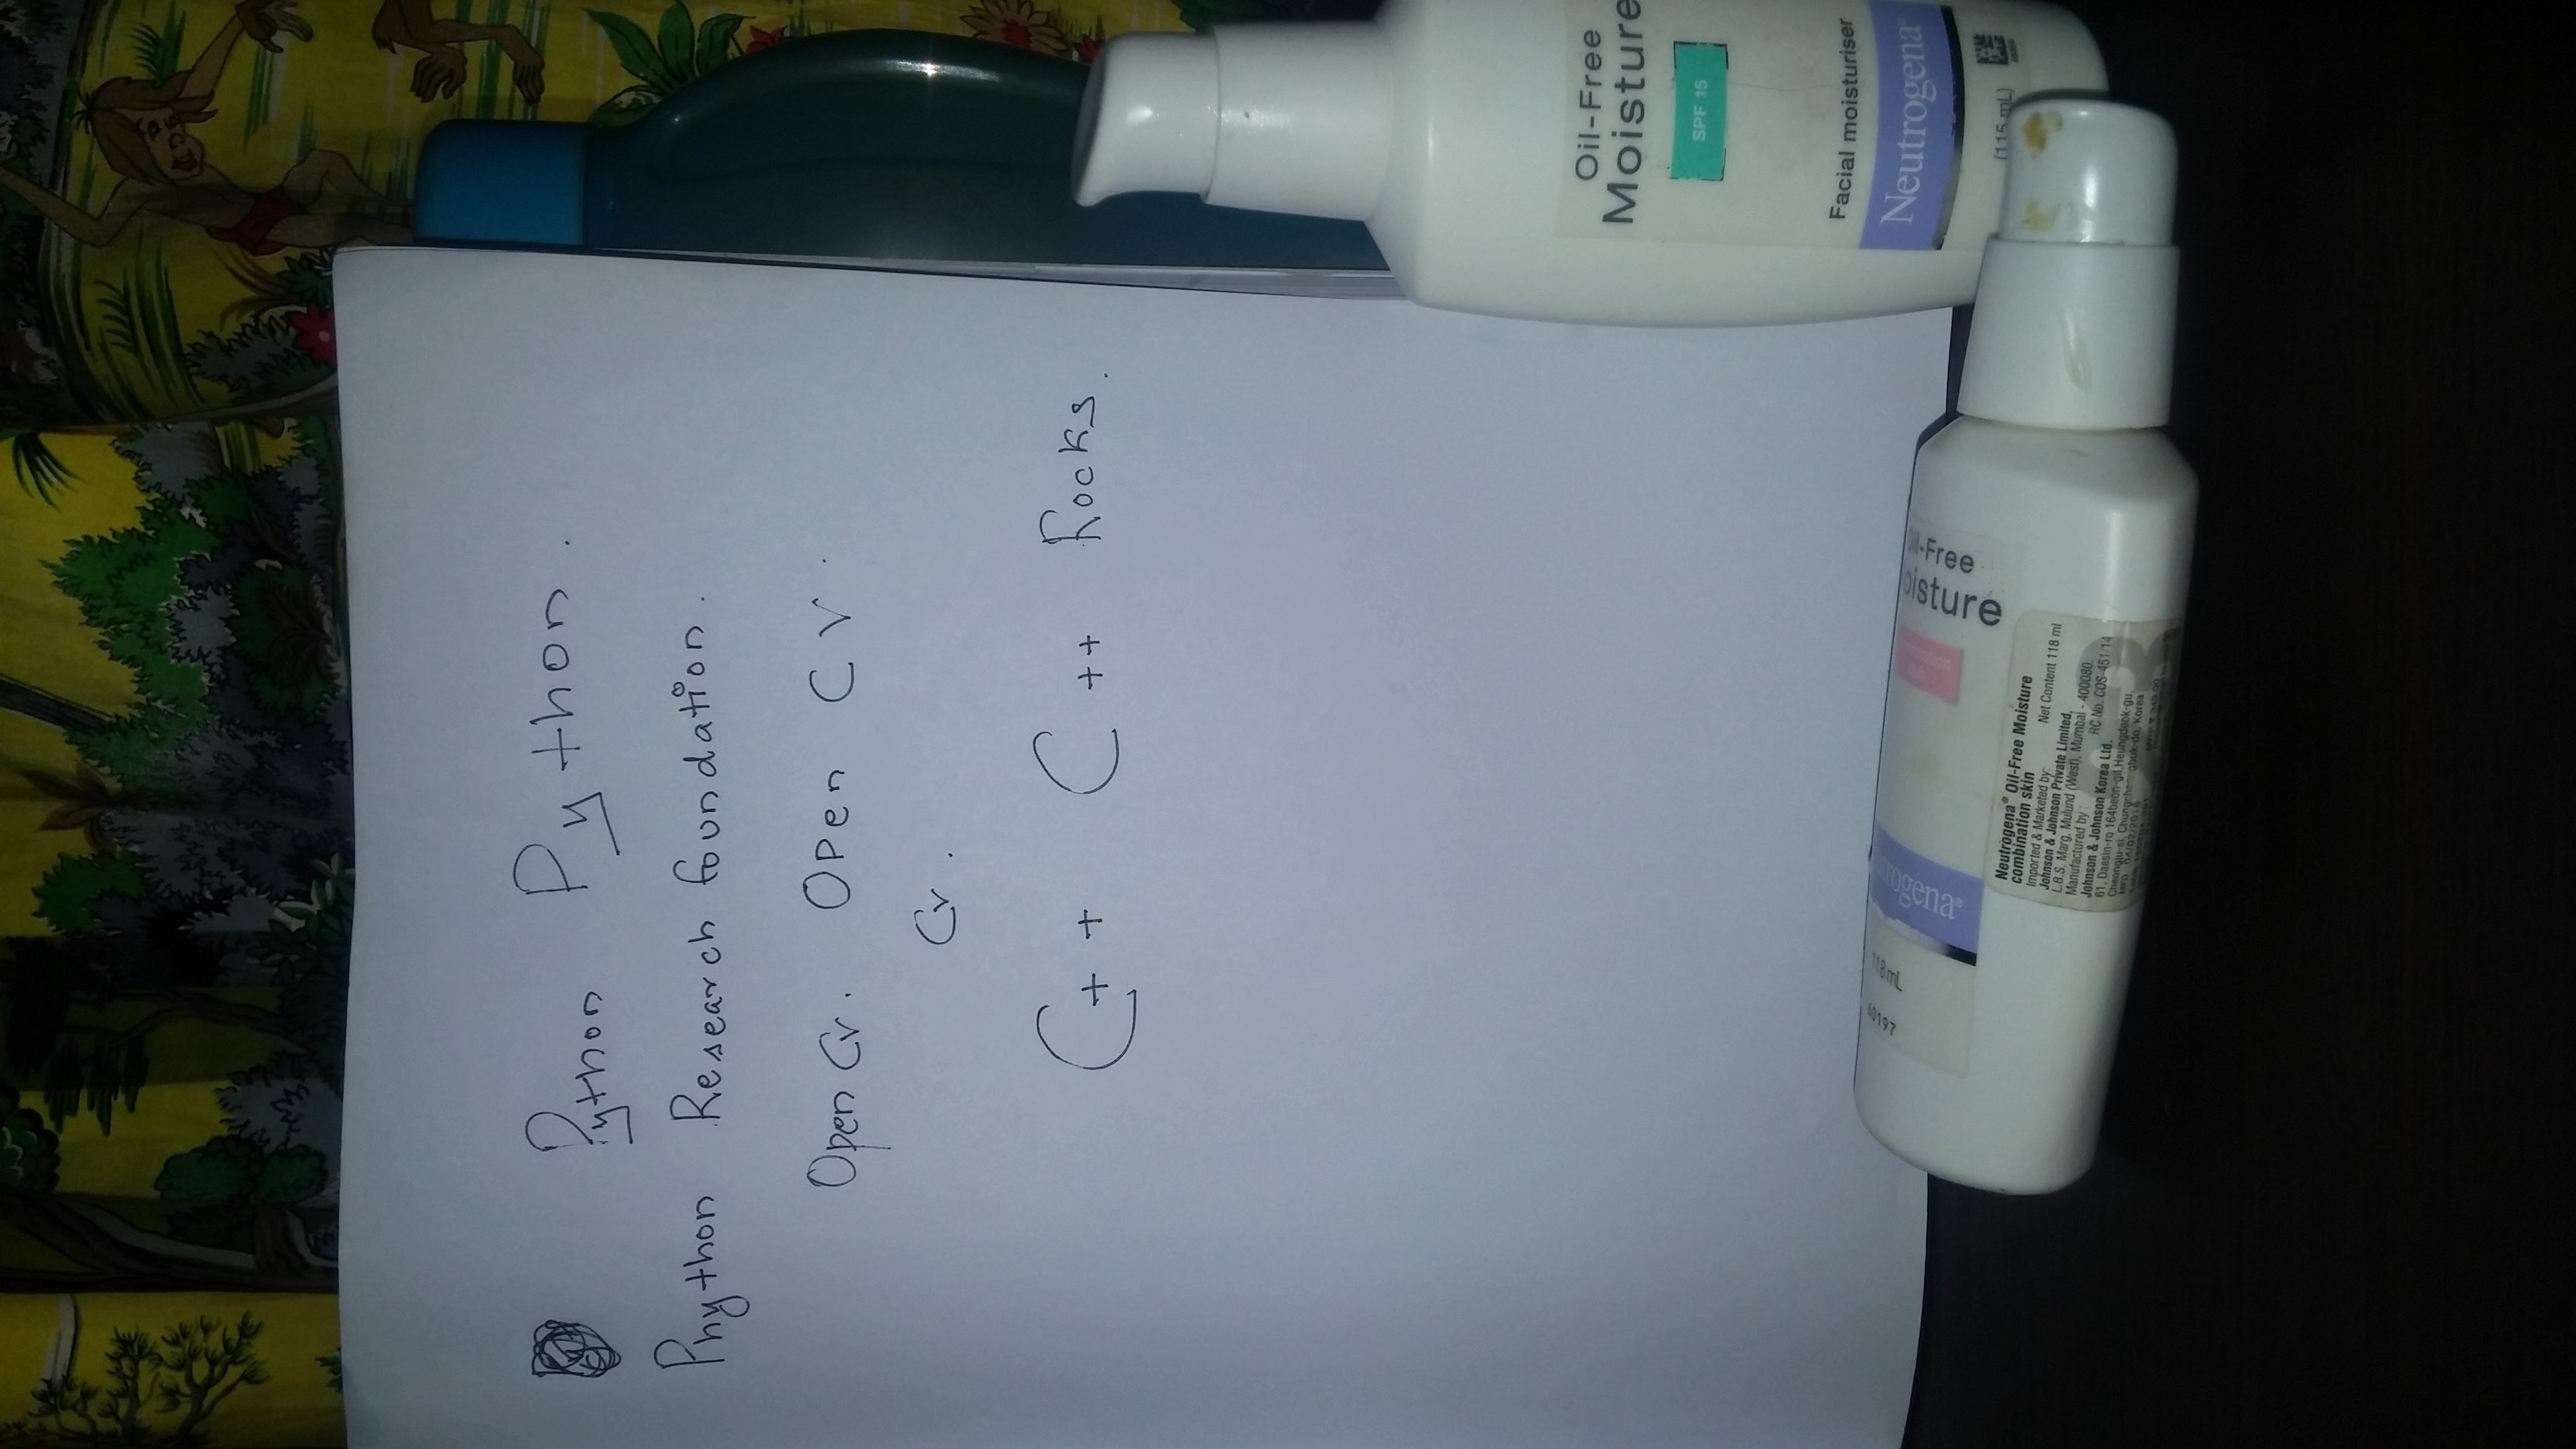 Python Python.
Phython Research foundation.
Open Cv. Open CV.
Cv.
C++ C++ Rocks.
Oil-Free
Moisture
SPF 15
Facial moisturiser
Neutrogena
(115 mL)
Oil-Free
Moisture
118 mL
60197
Neutrogena® Oil-Free Moisture
combination skin
Net Content 118 ml
Imported & Marketed by:
Johnson & Johnson Private Limited,
L.B.S. Marg, Mulund (West), Mumbai - 400080.
RC No. COS-451/14
Manufactured by :
Johnson & Johnson Korea Ltd.
61, Daesin-ro 164beon-gil, Heungdeok-gu,
Cheongju-si, Chungcheongbuk-do, Korea